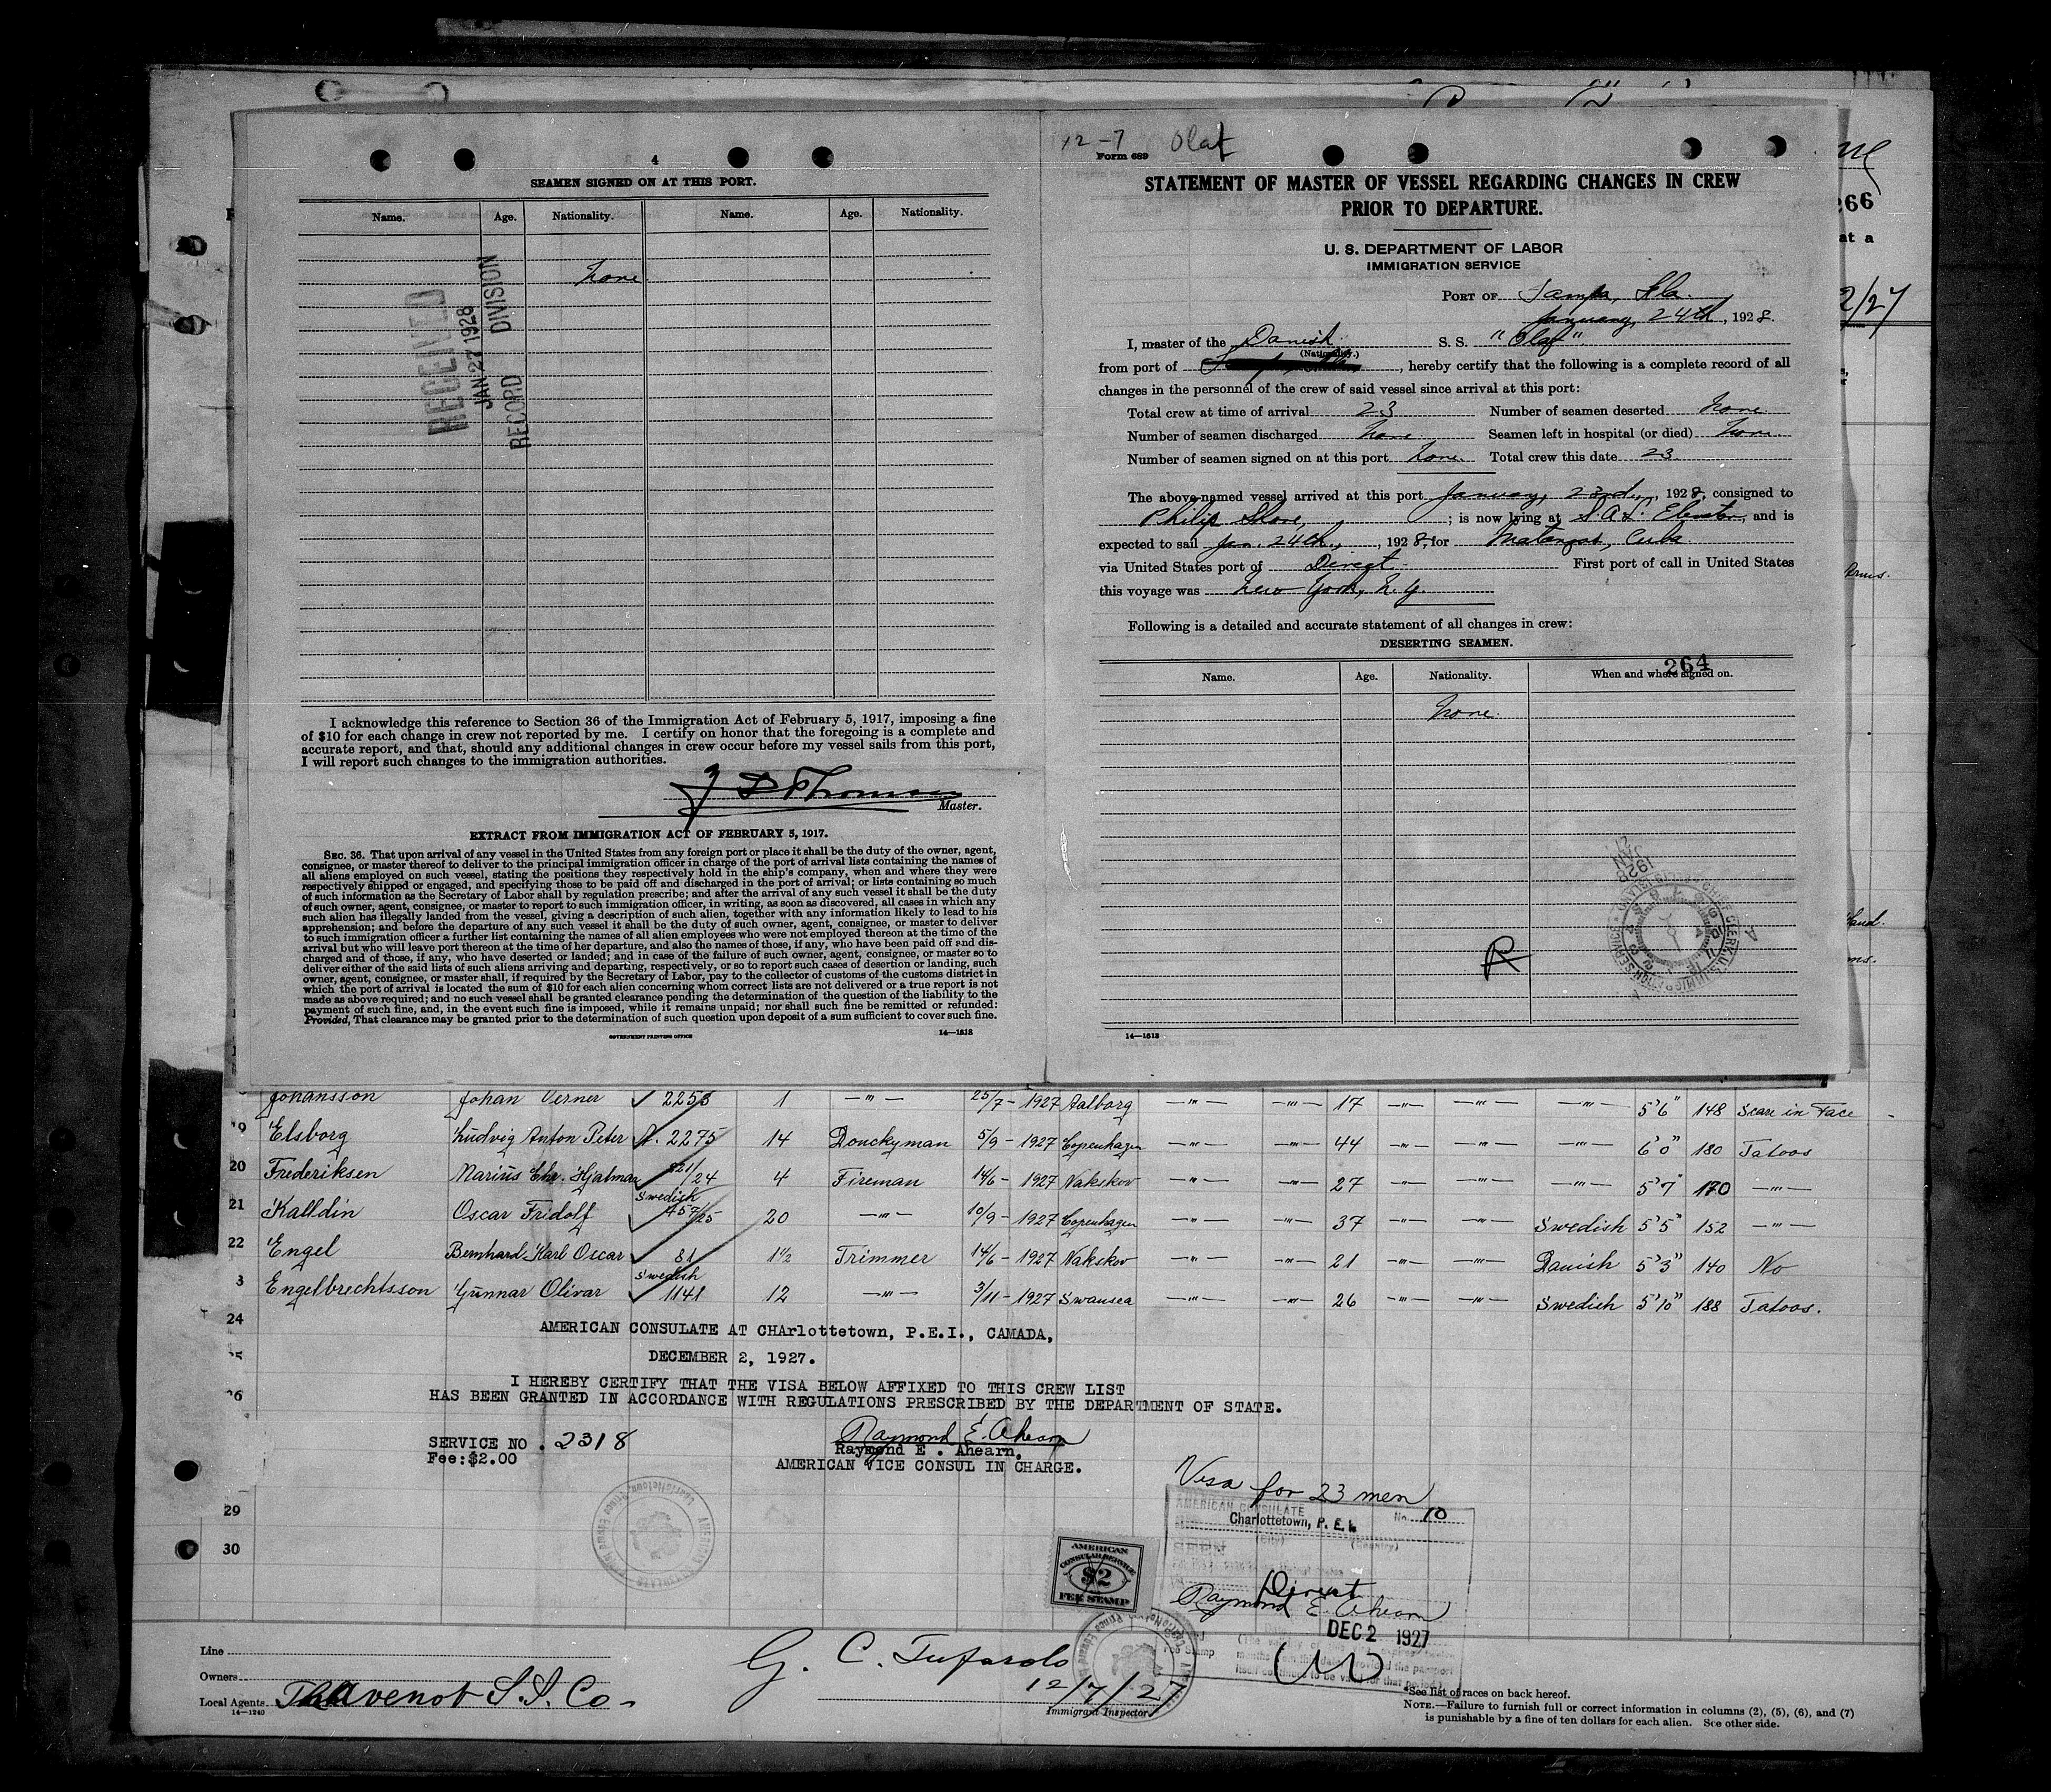 4
SEAMEN SIGNED ON AT THIS PORT.
Name. Age. Nationality. Name. Age. Nationality.
None
RECEIVED
JAN 27 1928
RECORD DIVISION
I acknowledge this reference to Section 36 of the Immigration Act of February 5, 1917, imposing a fine
of $10 for each change in crew not reported by me. I certify on honor that the foregoing is a complete and
accurate report, and that, should any additional changes in crew occur before my vessel sails from this port,
I will report such changes to the immigration authorities.
Master.
EXTRACT FROM IMMIGRATION ACT OF FEBRUARY 5, 1917.
SEC. 36. That upon arrival of any vessel in the United States from any foreign port or place it shall be the duty of the owner, agent,
consignee, or master thereof to deliver to the principal immigration officer in charge of the port of arrival lists containing the names of
all aliens employed on such vessel, stating the positions they respectively hold in the ship's company, when and where they were
respectively shipped or engaged, and specifying those to be paid off and discharged in the port of arrival; or lists containing so much
of such information as the Secretary of Labor shall by regulation prescribe; and after the arrival of any such vessel it shall be the duty
of such owner, agent, consignee, or master to report to such immigration officer, in writing, as soon as discovered, all cases in which any
such alien has illegally landed from the vessel, giving a description of such alien, together with any information likely to lead to his
apprehension; and before the departure of any such vessel it shall be the duty of such owner, agent, consignee, or master to deliver
to such immigration officer a further list containing the names of all alien employees who were not employed thereon at the time of the
arrival but who will leave port thereon at the time of her departure, and also the names of those, if any, who have been paid off and dis-
charged and of those, if any, who have deserted or landed; and in case of the failure of such owner, agent, consignee, or master so to
deliver either of the said lists of such aliens arriving and departing, respectively, or so to report such cases of desertion or landing, such
owner, agent, consignee, or master shall, if required by the Secretary of Labor, pay to the collector of customs of the customs district in
which the port of arrival is located the sum of $10 for each alien concerning whom correct lists are not delivered or a true report is not
made as above required; and no such vessel shall be granted clearance pending the determination of the question of the liability to the
payment of such fine, and, in the event such fine is imposed, while it remains unpaid; nor shall such fine be remitted or refunded:
Provided, That clearance may be granted prior to the determination of such question upon deposit of a sum sufficient to cover such fine.
GOVERNMENT PRINTING OFFICE 14—1613
12-7 Olaf
Form 689
STATEMENT OF MASTER OF VESSEL REGARDING CHANGES IN CREW
PRIOR TO DEPARTURE.
U. S. DEPARTMENT OF LABOR
IMMIGRATION SERVICE
PORT OF Tampa, Fla.
January, 24th, 1928.
I, master of the Danish S. S. "Olaf"
(Nationality.)
from port of , hereby certify that the following is a complete record of all
changes in the personnel of the crew of said vessel since arrival at this port:
Total crew at time of arrival 23 Number of seamen deserted None
Number of seamen discharged None Seamen left in hospital (or died) None
Number of seamen signed on at this port None Total crew this date 23
The above-named vessel arrived at this port January, 23rd, 1928, consigned to
Philip Shore, ; is now lying at S.A.L. Elevator, and is
expected to sail Jan. 24th, 1928, for Matanzas, Cuba
via United States port of Direct First port of call in United States
this voyage was New York, N.Y.
Following is a detailed and accurate statement of all changes in crew:
DESERTING SEAMEN.
264
Name. Age. Nationality. When and where signed on.
None.
R
14—1613
266
at a
2/27
Johansson Johan Verner 2253 1 —"— 25/7 - 1927 Aalborg —"— —"— 17 —"— —"— —"— 5'6" 148 Scare in Face
9 Elsborg Ludvig Anton Peter 2275 14 Donckyman 5/9 - 1927 Copenhagen —"— —"— 44 —"— —"— —"— 6'0" 180 Tatoos
20 Frederiksen Marius Chr. Hjalmar 821/24 4 Fireman 14/6 - 1927 Nakskov —"— —"— 27 —"— —"— —"— 5'7" 170 —"—
21 Kalldin Oscar Fridolf Swedish 457/25 20 —"— 10/9 - 1927 Copenhagen —"— —"— 37 —"— —"— Swedish 5'5" 152 —"—
22 Engel Bernhard Karl Oscar 81 1½ Trimmer 14/6 - 1927 Nakskov —"— —"— 21 —"— —"— Danish 5'3" 140 No
3 Engelbrechtsson Gunnar Olivar Swedish 1141 12 —"— 3/11 - 1927 Swansea —"— —"— 26 —"— —"— Swedish 5'10" 188 Tatoos.
24
AMERICAN CONSULATE AT CHArlottetown, P.E.I., CAMADA,
DECEMBER 2, 1927.
I HEREBY CERTIFY THAT THE VISA BELOW AFFIXED TO THIS CREW LIST
26
HAS BEEN GRANTED IN ACCORDANCE WITH REGULATIONS PRESCRIBED BY THE DEPARTMENT OF STATE.
Raymond E. Ahearn
SERVICE NO. 2318 Raymond E. Ahearn,
Fee:$2.00 AMERICAN VICE CONSUL IN CHARGE.
29
30
Visa for 23 men
AMERICAN CONSULATE No. 10
Charlottetown, P.E.I.
(City) (Country)
Direct
Raymond E. Ahearn
DEC 2 1927
AMERICAN
CONSULAR SERVICE
$2
FEE STAMP
Line
Owners
Local Agents Thavenot S.S. Co-
14—1240
G. C. Tufarolo
12/7/27
Immigrant Inspector
*See list of races on back hereof.
NOTE.—Failure to furnish full or correct information in columns (2), (5), (6), and (7)
is punishable by a fine of ten dollars for each alien. See other side.